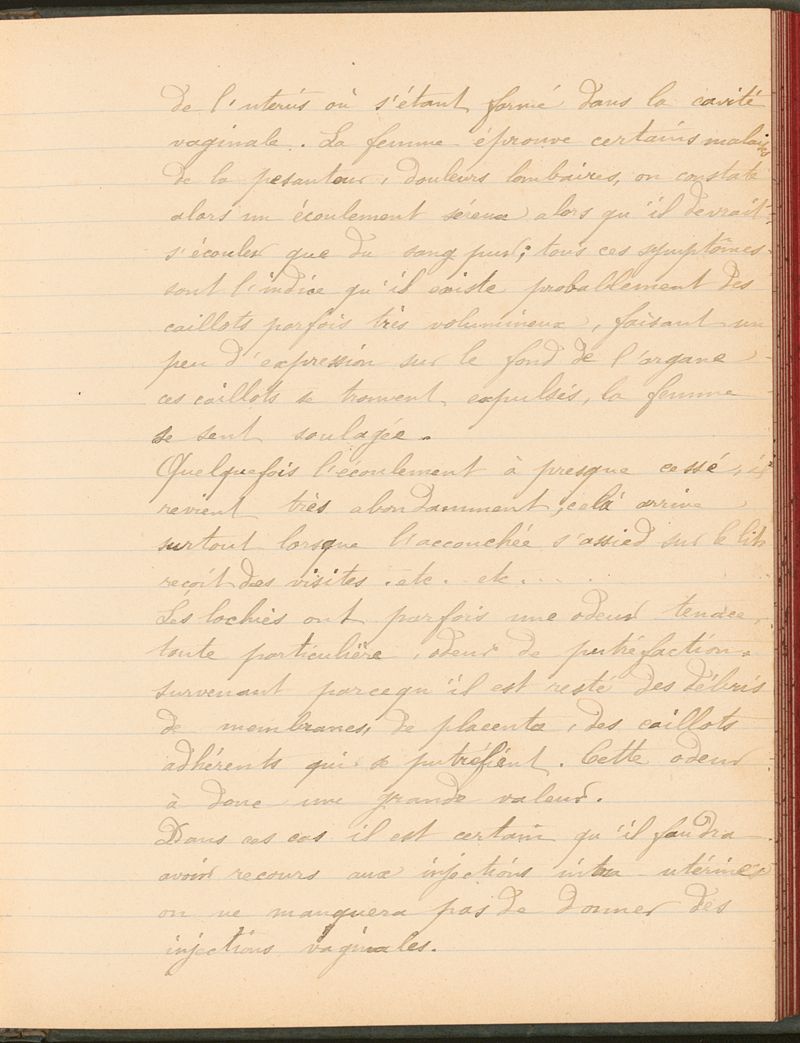 de l'uterus où s'étant formé dans la cavité
vaginale. La femme éprouve certains malaises
de la pesanteur, douleurs lombaires, on constate
alors un écoulement séreux alors qu'il devrait
s'écouler que du sang pur; tous ces symptômes
sont l'indice qu'il existe probablement des
caillots parfois très volumineux, faisant un
peu d'expression sur le fond de l'organe
ces caillots se trouvent expulsés, la femme
se sent soulagée.
Quelquefois l'écoulement à presque cessé, il
revient très abondamment; celà arrive
surtout lorsque l'accouchée s'assied sur le lit
reçoit des visites. etc. etc....
Les lochies ont parfois une odeur tenace,
toute particulière, odeur de putréfaction.
survenant parcequ'il est resté des débris
de membranes, de placenta, des caillots
adhérents qui se putréfient. Cette odeur
à donc une grande valeur.
Dans ces cas il est certain qu'il faudra
avoir recours aux injections intra-utérines
on ne manquera pas de donner des
injections vaginales.